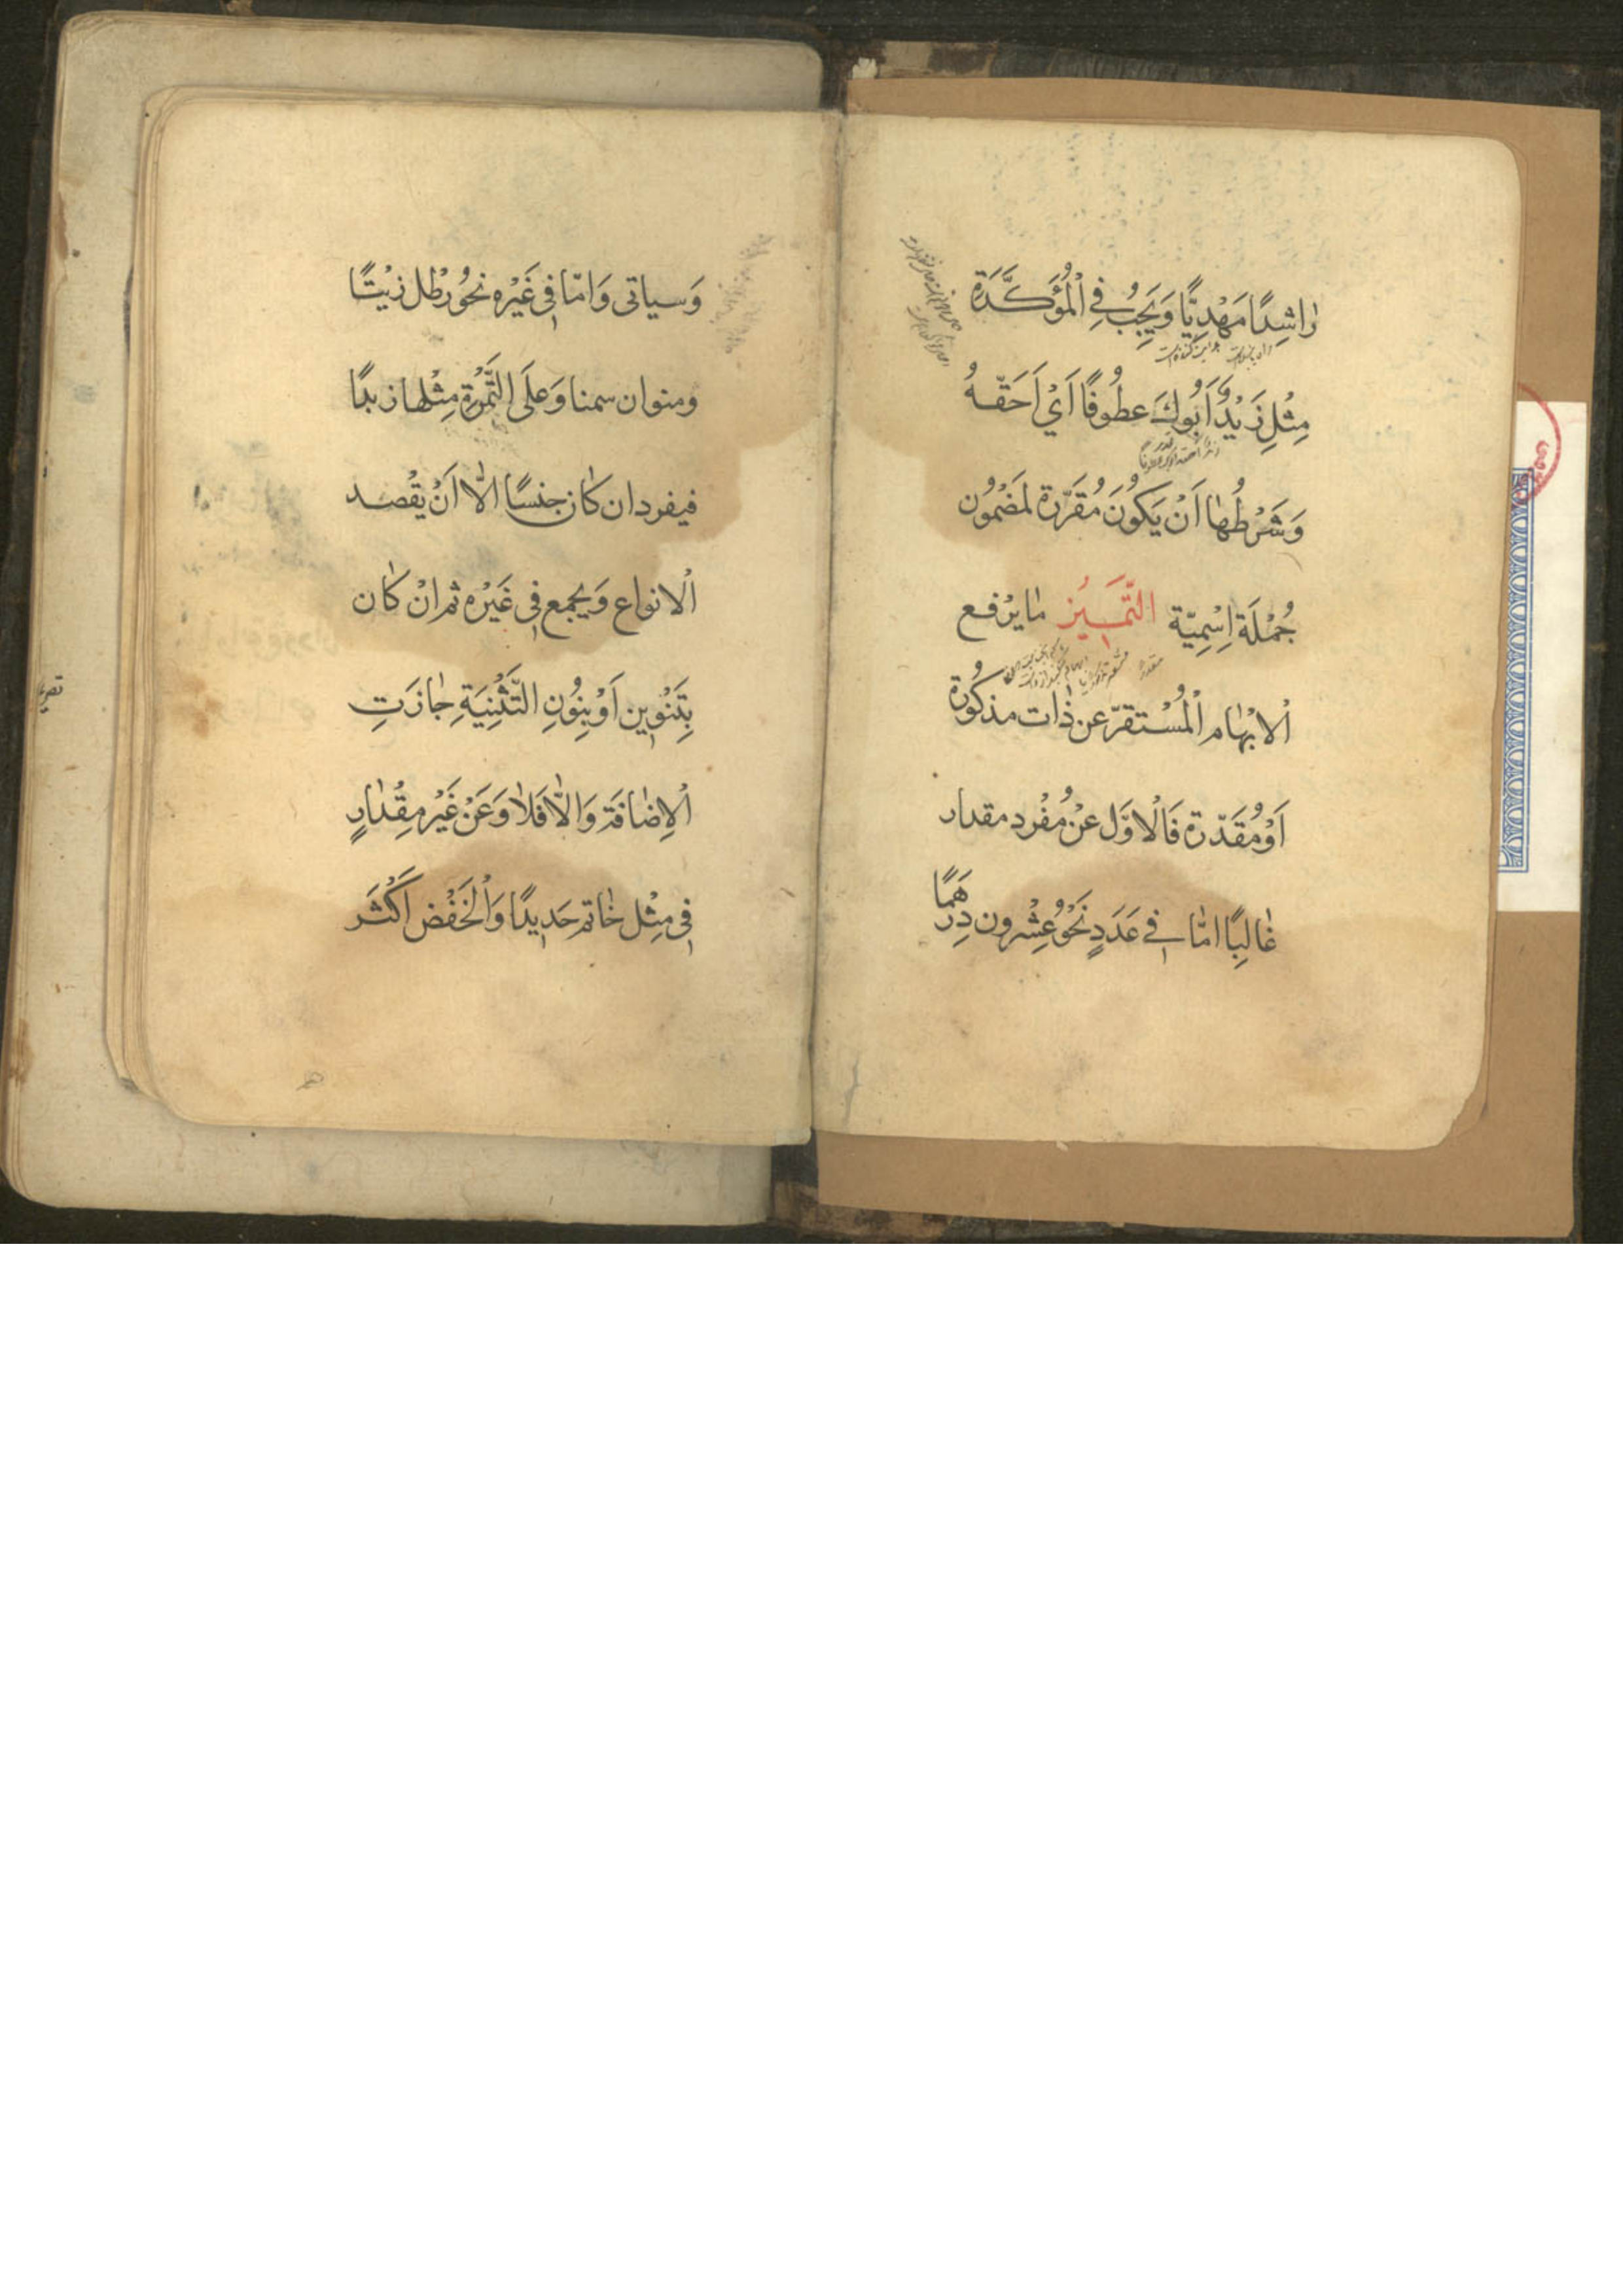 رٰاشِدًا مَهْدِيًّا وَيَجِبُ فِي الْمُؤَكَّدَةِ
مِثْلِ زَيْدٌ اَبُوكَ عطُوفًا اَيْ اَحَقّهُ
وَشَرْطُهٰا اَنْ يَكُونَ مُقَرّرة لمَضْمُون
جُمْلَة اِسْمِيّة التّمَييُز مٰا يرْفع
اْلابْهٰام اْلمُسْتقرّ عن ذٰات مذكُورة
اَوْ مُقَدّرة فَاْلاوَّل عنْ مُفْرد مقدار
غٰالِبًا امّٰا فِي عَدَدٍ نَحْوُ عِشْرون دِرْهَمًا
وَسياتى وَامّا فِي غَيْره نحْوُ رطْل زيْتًا
ومنوان سمنا وَعلَى التَّمْرة مِثْلها زبدًا
فيفرد ان كٰان جنسًا الّا اَنْ يقْصد
اْلانواع وَيجمع فِي غَيْره ثم انْ كٰان
بِتَنْوِين اَوْ بِنُونِ التَّثْنِيَةِ جٰازَتِ
اْلاِضٰافَة وَالّا فَلاٰ وَعَنْ غَيْر مِقْدٰارٍ
فِي مِثْل خٰاتم حَدِيدًا وَاْلخَفْض اَكْثَر